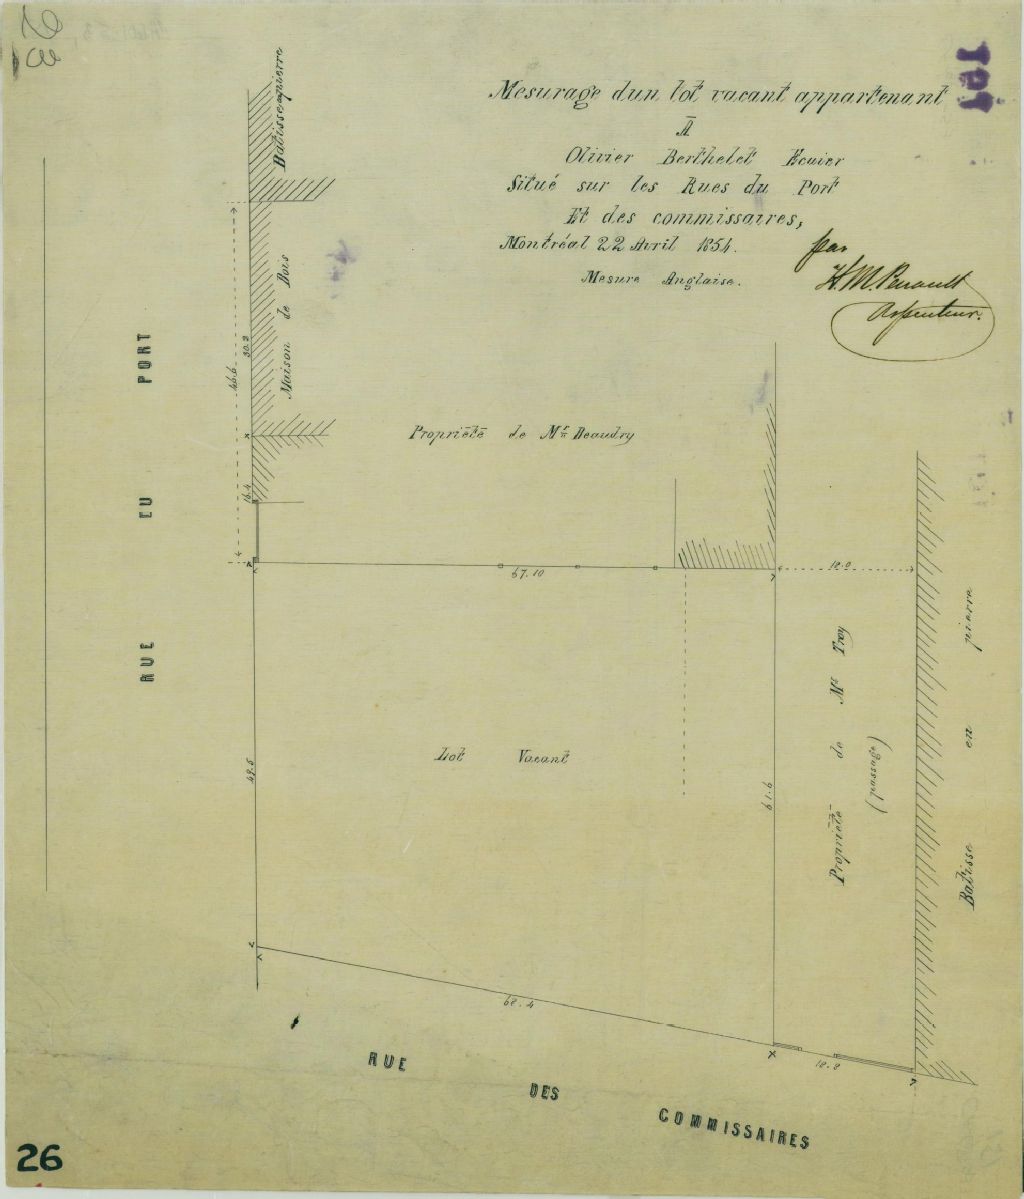 Mesurage dun lot vacant appartenant
À
Olivier Berthelet Ecuier
Situé sur les Rues du Port
Et des commissaires,
Montréal 22 Avril 1854.
Mesure Anglaise.
par
H. M. Perrault
Arpenteur.
101
Batisse en pierre
Maison de Bois
30.2
46.6
16.4
RUE DU PORT
Propriété de Mr. Beaudry
67.10
12.0
Lot Vacant
49.5
61.6
Propriété de Mr Troy
(passage)
Batisse en pierre
68.4
12.2
RUE DES COMMISSAIRES
26